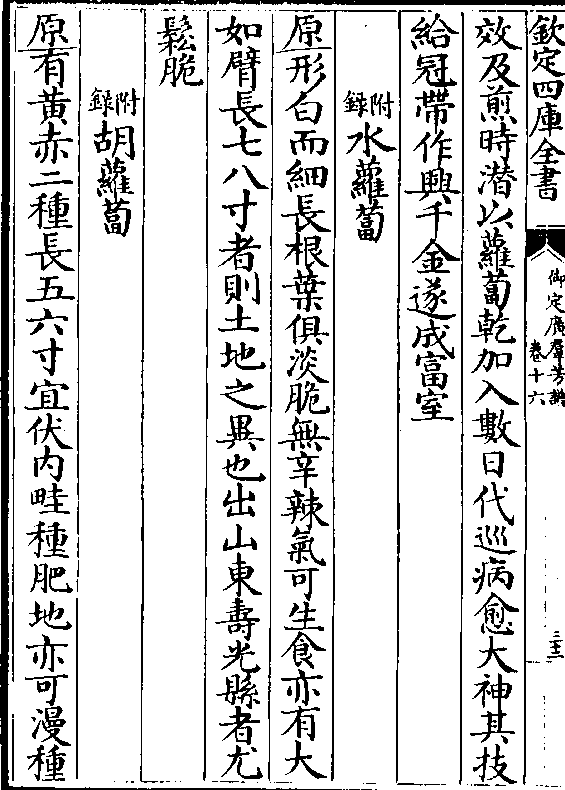 欽定四庫全書
御定廣羣芳譜
卷十六
三三
效及煎時潛以蘿蔔乾加入數日代巡病愈大神其技
給冠帶作興千金遂成富室
附錄水蘿蔔
原形白而細長根葉俱淡脆無辛辣氣可生食亦有大
如臂長七八寸者則土地之異也出山東壽光縣者尤
鬆脆
附錄胡蘿蔔
原有黃赤二種長五六寸宜伏內畦種肥地亦可漫種